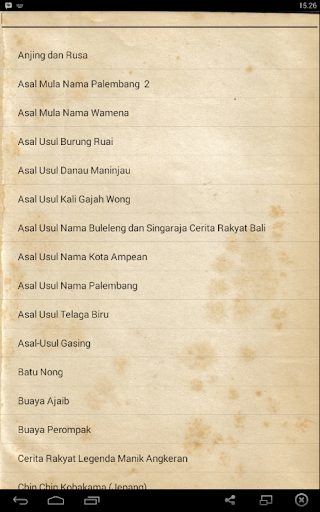 15.26
Anjing dan Rusa
Asal Mula Nama Palembang 2
Asal Mula Nama Wamena
Asal Usul Burung Ruai
Asal Usul Danau Maninjau
Asal Usul Kali Gajah Wong
Asal Usul Nama Buleleng dan Singaraja Cerita Rakyat Bali
Asal Usul Nama Kota Ampean
Asal Usul Nama Palembang
Asal Usul Telaga Biru
Asal-Usul Gasing
Batu Nong
Buaya Ajaib
Buaya Perompak
Cerita Rakyat Legenda Manik Angkeran
Chin Chin Kobakama (Jepang)